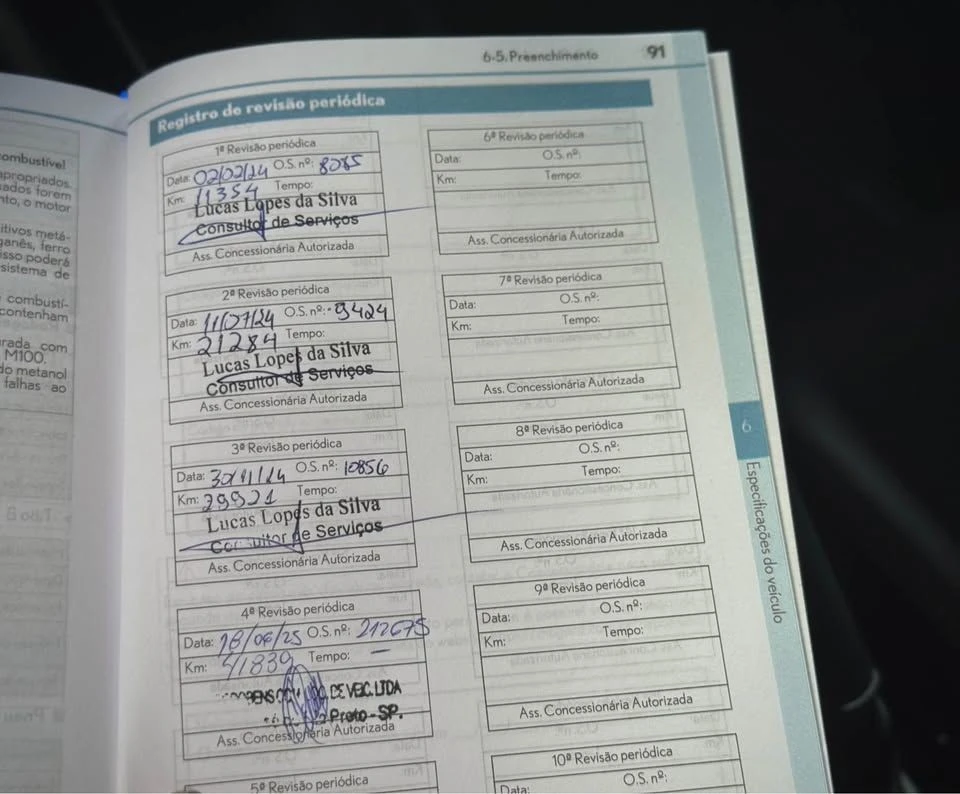 6-5. Preenchimento 91
Registro de revisão periódica
ombustível
apropriados.
sados forem
nto, o motor
itivos metá-
ganês, ferro
isso poderá
sistema de
combustí-
contenham
urada com
M100.
do metanol
falhas ao
1ª Revisão periódica
Data: 02/02/24 O.S. nº: 8085
Km: 11354 Tempo:
Lucas Lopes da Silva
Consultor de Serviços
Ass. Concessionária Autorizada
2ª Revisão periódica
Data: 11/07/24 O.S. nº: 9424
Km: 21284 Tempo:
Lucas Lopes da Silva
Consultor de Serviços
Ass. Concessionária Autorizada
3ª Revisão periódica
Data: 30/11/24 O.S. nº: 10856
Km: 29921 Tempo:
Lucas Lopes da Silva
Consultor de Serviços
Ass. Concessionária Autorizada
4ª Revisão periódica
Data: 18/06/25 O.S. nº: 212675
Km: 41839 Tempo:
DE VEIC. LTDA
Preto - SP.
Ass. Concessionária Autorizada
5ª Revisão periódica
6ª Revisão periódica
Data: O.S. nº:
Km: Tempo:
Ass. Concessionária Autorizada
7ª Revisão periódica
Data: O.S. nº:
Km: Tempo:
Ass. Concessionária Autorizada
8ª Revisão periódica
Data: O.S. nº:
Km: Tempo:
Ass. Concessionária Autorizada
9ª Revisão periódica
Data: O.S. nº:
Km: Tempo:
Ass. Concessionária Autorizada
10ª Revisão periódica
Data: O.S. nº:
6
Especificações do veículo